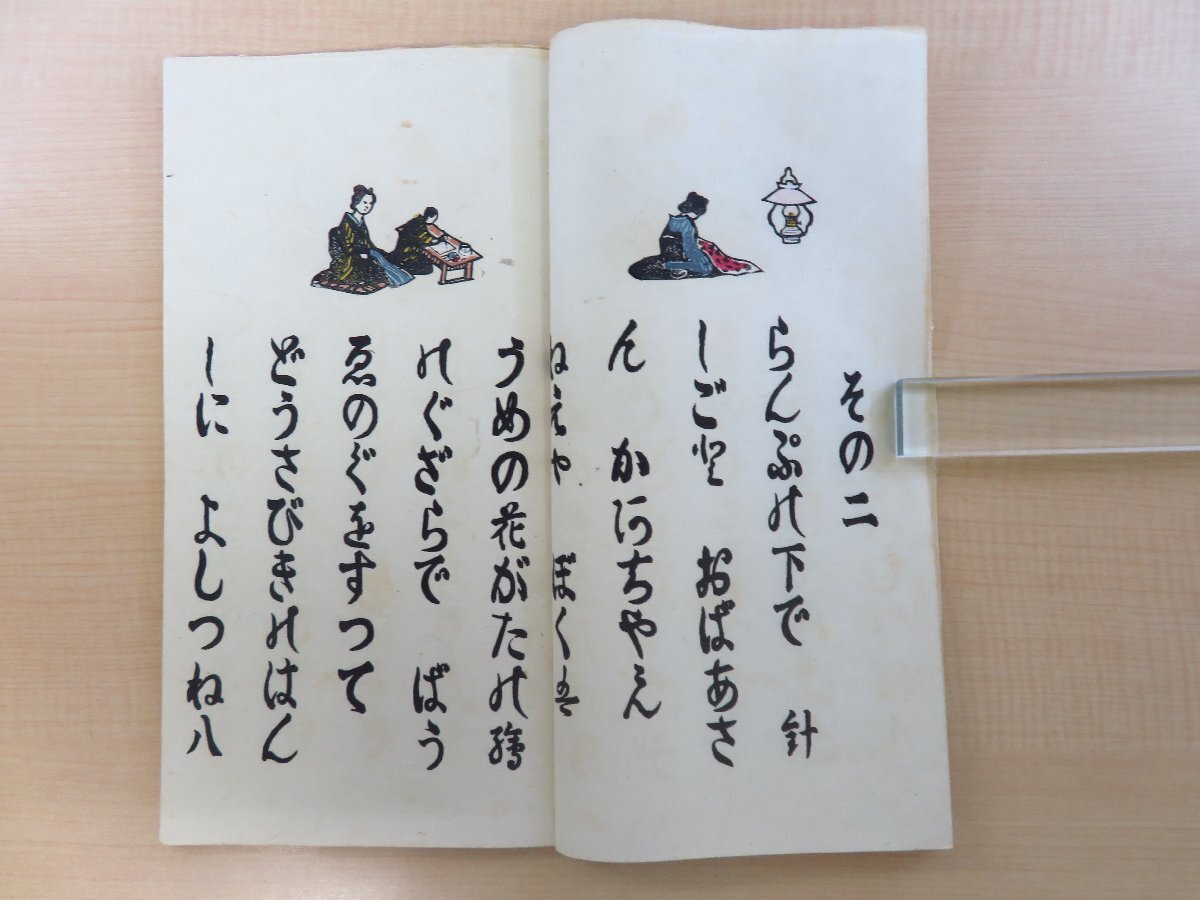 その二
らんぷの下で　針
しごと　おばあさ
ん　かあちやん
ねえや　ぼく
うめの花がたの繪
のぐざらで　ばう
ゑのぐをすつて
どうさびきのはん
しに　よしつね八